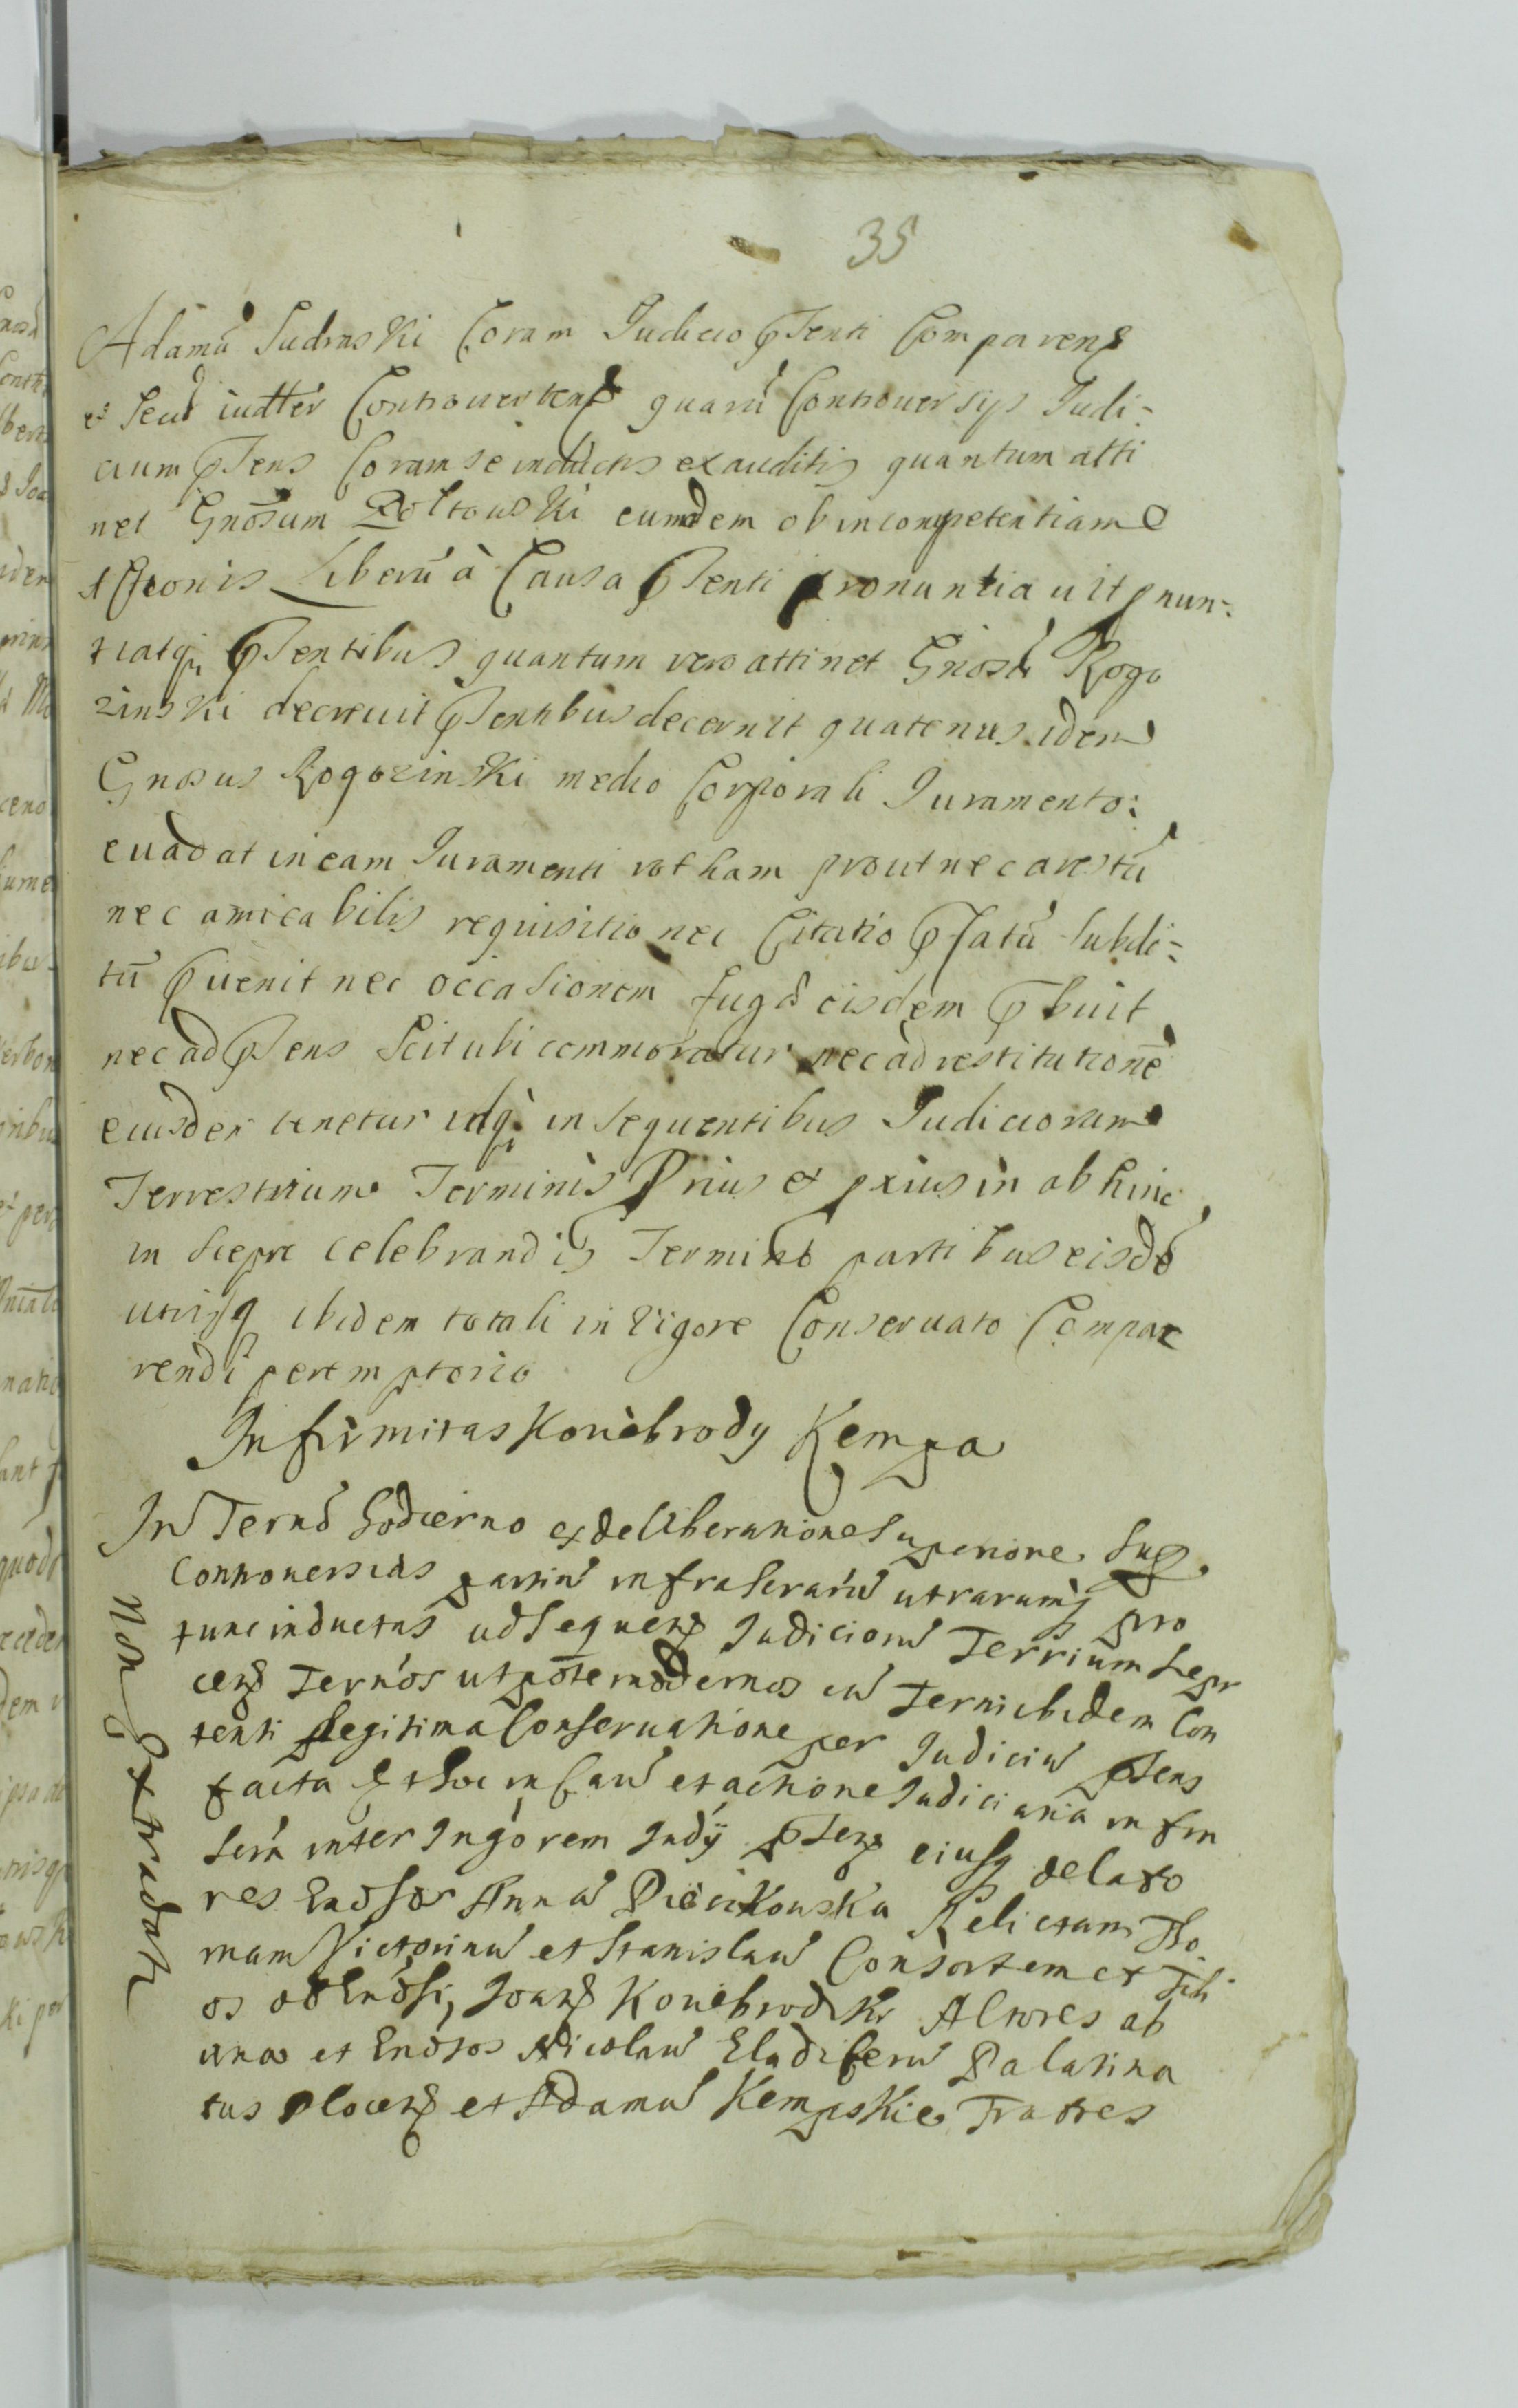 35
Adamũ Sudraski Coram Judicio pſenti Comparen
et Secũ iudtter Controverten quarũ Controversys Judi=
cium pſens Coram se inductis exauditis quantum atti
net Gnosum Zoltowski eumdem ob incompetentiam
Actionis Liberũ à Causa pſenti pronuntiauit pnun=
tiatq pſentibus quantum vero attinet Gnosũ Rogo
zinski decrevit pſentibus decernit quatenus idem
Gnosus Rogozinski medio Corporali Juramento
evadat in eam Juramenti rotham prout nec arestũ
nec amicabilis requisitio nec Citatio pfatũ Subdi=
tũ pvenit nec occasionem fugæ eisdem pbuit
nec ad pſens Scit ubi commoratur nec ad restitutionẽ
eiusdem tenetur idq in sequentibus Judiciorum
Terrestrium Terminis Prius et prius in abhinc
in Sierpc celebrandis Termino partibus eisdẽ
utrisq ibidem totali in Vigore Conservato Compa
rendi peremptorio
Infirmitas Koniebrody Kempa
In Terno hodierno ex deliberatione Superiore Sup
Controversias partiũ infraſcrarũ utrarumq pro
tunc inductas ad Sequen Judiciorũ Terrium Sepr
cen Ternos utpote modernos cũ Terni ibidem Con
tenti legitima Conservatione per Judiciũ pſens
facta Et hoc in Cauſ et actione Judiciaria in fra
Scra inter Ingorem Judy pſen eiusq delato
res Gnosſos Annã Piecikowska Relictam Tho
mam Victorinũ et Stanislaũ Consortem et Fili
os od Gnosi, Joan Koniebrodzki Actores ab
una et Gnosos Nicolaũ Gladiferũ Palatina
tus Plocen et Adamũ Kempskie Fratres
Non Extradatr